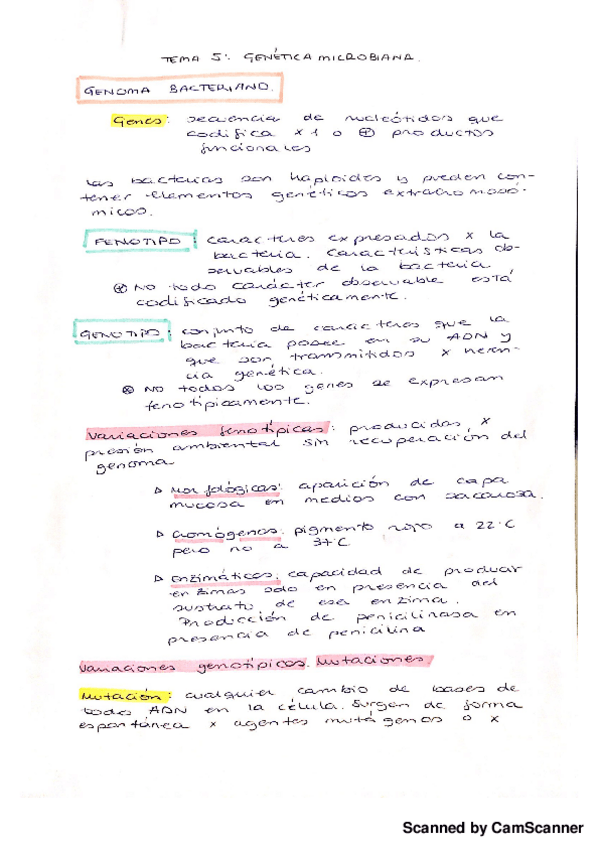 TEMA 5: GENÉTICA MICROBIANA.
GENOMA BACTERIANO.
Genes: secuencia de nucleótidos que
codifica x 1 o ⊕ productos
funcionales
Las bacterias son haploides y pueden con-
tener elementos genéticos extracromosó-
micos.
FENOTIPO: caracteres expresados x la
bacteria. Características ob-
servables de la bacteria
⊕ NO todo carácter observable está
codificado genéticamente.
GENOTIPO: conjunto de caracteres que la
bacteria posee en su ADN y
que son transmitidos x heren-
cia genética.
⊗ NO todos los genes se expresan
fenotípicamente.
Variaciones fenotípicas: producidas x
presión ambiental sin recuperación del
genoma
▷ Morfológicas: aparición de capa
mucosa en medios con sacarosa.
▷ Cromógenos: pigmento rojo a 22°C
pero no a 37°C
▷ Enzimáticos: capacidad de producir
enzimas solo en presencia del
sustrato de esa enzima.
Producción de penicilinasa en
presencia de penicilina
Variaciones genotípicas. Mutaciones
Mutación: cualquier cambio de bases de
todo ADN en la célula. Surgen de forma
espontánea x agentes mutágenos o x
Scanned by CamScanner